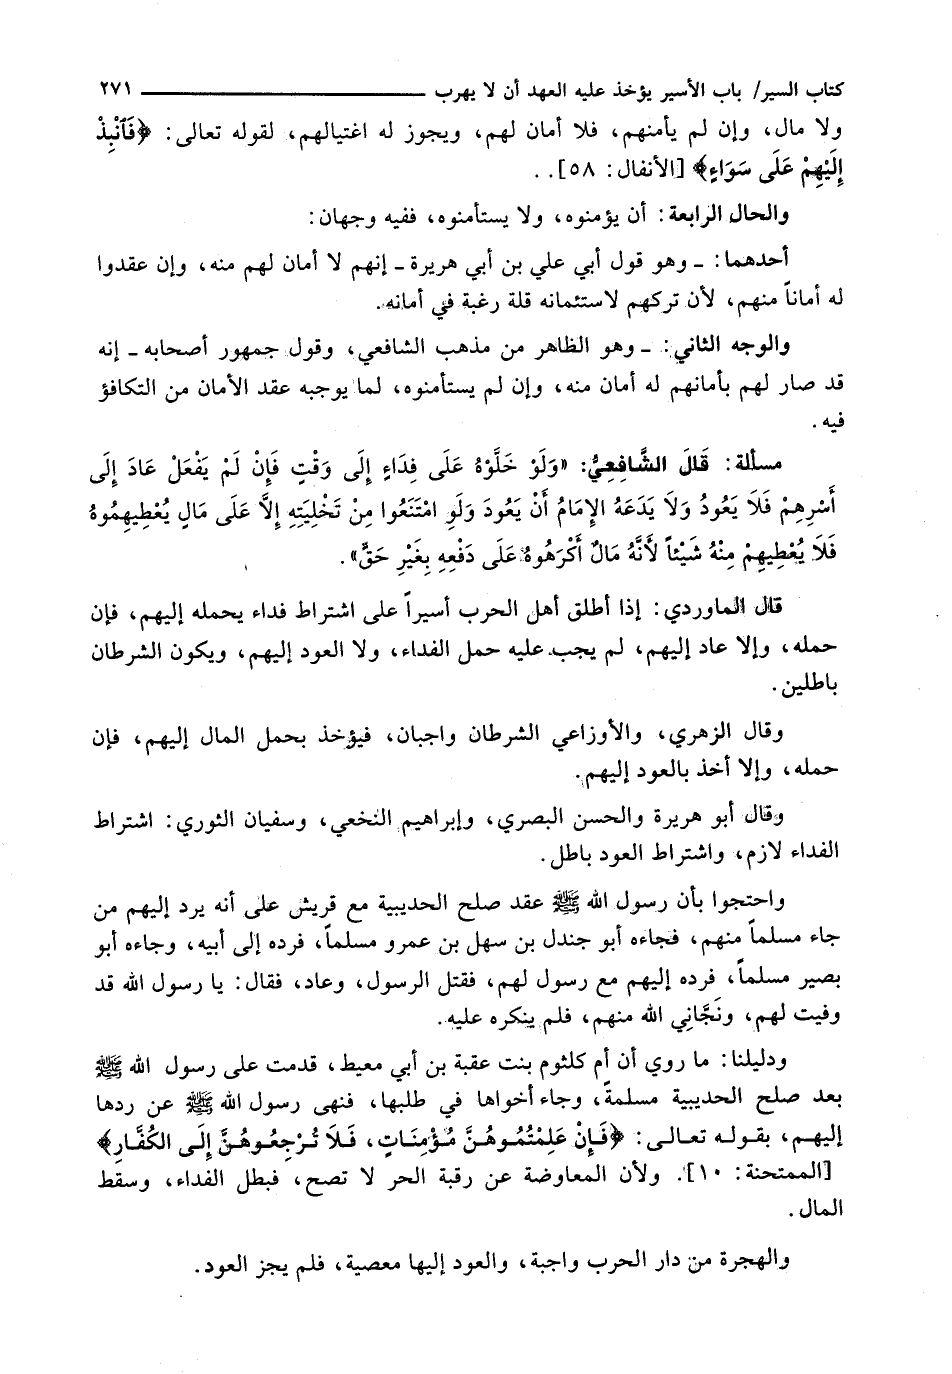 كتاب السير/ باب الأسير يؤخذ عليه العهد أن لا يهرب ٢٧١
ولا مال، وإن لم يأمنهم، فلا أمان لهم، ويجوز له اغتيالهم، لقوله تعالى: ﴿فَٱنْبِذْ
إِلَيْهِمْ عَلَى سَوَاءٍ﴾ [الأنفال: ٥٨]. .
والحال الرابعة: أن يؤمنوه، ولا يستأمنوه، ففيه وجهان:
أحدهما: ـ وهو قول أبي علي بن أبي هريرة ـ إنهم لا أمان لهم منه، وإن عقدوا
له أماناً منهم، لأن تركهم لاستئمانه قلة رغبة في أمانه.
والوجه الثاني: ـ وهو الظاهر من مذهب الشافعي، وقول جمهور أصحابه ـ إنه
قد صار لهم بأمانهم له أمان منه، وإن لم يستأمنوه، لما يوجبه عقد الأمان من التكافؤ
فيه.
مسألة: قَالَ الشَّافِعِيُّ: «وَلَوْ خَلَّوْهُ عَلَى فِدَاءٍ إِلَى وَقْتٍ فَإِنْ لَمْ يَفْعَلْ عَادَ إِلَى
أَسْرِهِمْ فَلَا يَعُودُ وَلَا يَدَعَهُ الإِمَامُ أَنْ يَعُودَ وَلَوِ امْتَنَعُوا مِنْ تَخْلِيَتِهِ إِلاَّ عَلَى مَالٍ يُعْطِيهِمُوهُ
فَلَا يُعْطِيهِمْ مِنْهُ شَيْئاً لأَنَّهُ مَالٌ أَكْرَهُوهُ عَلَى دَفْعِهِ بِغَيْرِ حَقٍّ».
قال الماوردي: إذا أطلق أهل الحرب أسيراً على اشتراط فداء يحمله إليهم، فإن
حمله، وإلا عاد إليهم، لم يجب عليه حمل الفداء، ولا العود إليهم، ويكون الشرطان
باطلين.
وقال الزهري، والأوزاعي الشرطان واجبان، فيؤخذ بحمل المال إليهم، فإن
حمله، وإلا أخذ بالعود إليهم.
وقال أبو هريرة والحسن البصري، وإبراهيم النخعي، وسفيان الثوري: اشتراط
الفداء لازم، واشتراط العود باطل.
واحتجوا بأن رسول الله ﷺ عقد صلح الحديبية مع قريش على أنه يرد إليهم من
جاء مسلماً منهم، فجاءه أبو جندل بن سهل بن عمرو مسلماً، فرده إلى أبيه، وجاءه أبو
بصير مسلماً، فرده إليهم مع رسول لهم، فقتل الرسول، وعاد، فقال: يا رسول الله قد
وفيت لهم، ونَجَّانِي الله منهم، فلم ينكره عليه.
ودليلنا: ما روي أن أم كلثوم بنت عقبة بن أبي معيط، قدمت على رسول الله ﷺ
بعد صلح الحديبية مسلمةً، وجاء أخواها في طلبها، فنهى رسول الله ﷺ عن ردها
إليهم، بقوله تعالى: ﴿فَإِنْ عَلِمْتُمُوهُنَّ مُؤْمِنَاتٍ، فَلَا تُرْجِعُوهُنَّ إِلَى الكُفَّارِ﴾
[الممتحنة: ١٠]. ولأن المعاوضة عن رقبة الحر لا تصح، فبطل الفداء، وسقط
المال.
والهجرة من دار الحرب واجبة، والعود إليها معصية، فلم يجز العود.